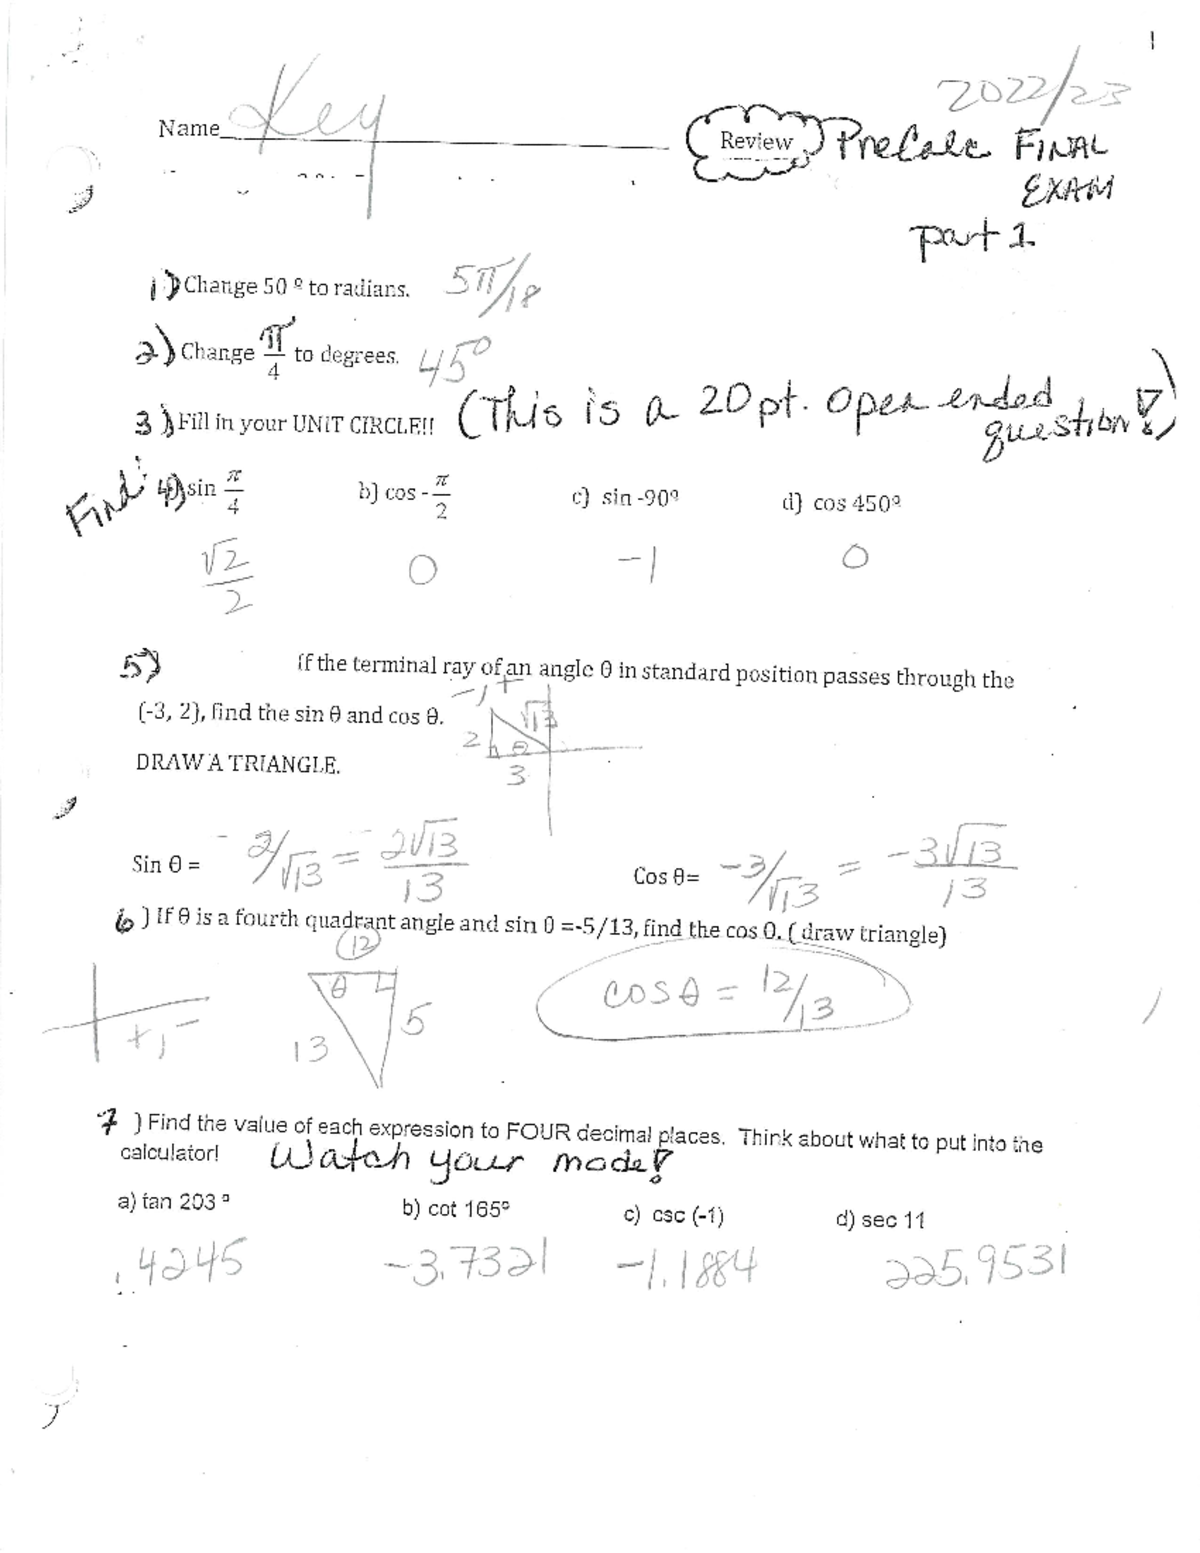 1
2022/23
Name Key
Review PreCalc FINAL
EXAM
part 1
1) Change 50 º to radians. 5π/18
2) Change π/4 to degrees. 45º
3) Fill in your UNIT CIRCLE!! (This is a 20 pt. open ended
question!)
Find: 4a) sin π/4 b) cos -π/2 c) sin -90º d) cos 450º
√2/2 0 -1 0
5) If the terminal ray of an angle θ in standard position passes through the
-, +
(-3, 2), find the sin θ and cos θ.
√13
2 θ
DRAW A TRIANGLE.
3
Sin θ = 2/√13 = 2√13/13 Cos θ= -3/√13 = -3√13/13
6 ) If θ is a fourth quadrant angle and sin θ =-5/13, find the cos θ. ( draw triangle)
12
θ
cos θ = 12/13
+, -
13 5
7 ) Find the value of each expression to FOUR decimal places. Think about what to put into the
calculator! Watch your mode!
a) tan 203 º b) cot 165º c) csc (-1) d) sec 11
.4245 -3.7321 -1.1884 225.9531